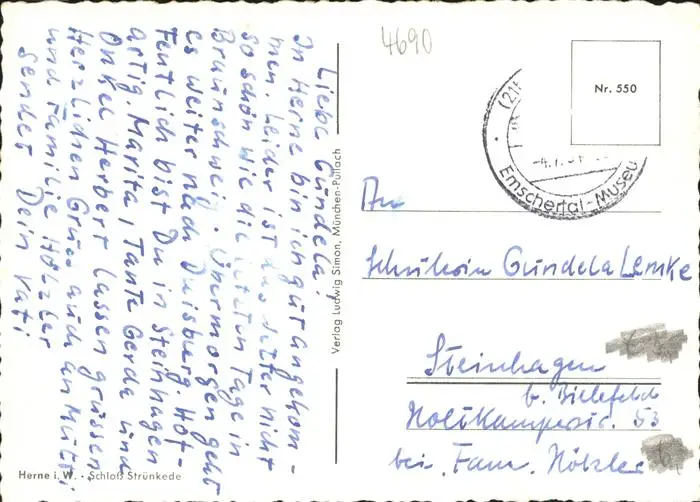 4690
Nr. 550
(21
Emschertal-Museu
Liebe Gundela!
In Herne bin ich gut angekom-
men. Leider ist das Wetter nicht
so schön wie die letzten Tage in
Braunschweig. Übermorgen geht
es weiter nach Duisburg. Hof-
fentlich bist Du in Steinhagen
artig. Marita, Tante Gerda und
Onkel Herbert lassen grüssen
Herzlichen Gruss auch an Mutti
und Familie Hölzler
sendet Dein Vati
Verlag Ludwig Simon, München-Pullach
An
Schülerin Gundela Lemke
Steinhagen
b. Bielefeld
Holtkampstr. 53
bei Fam. Hölzler
Herne i. W. · Schloß Strünkede